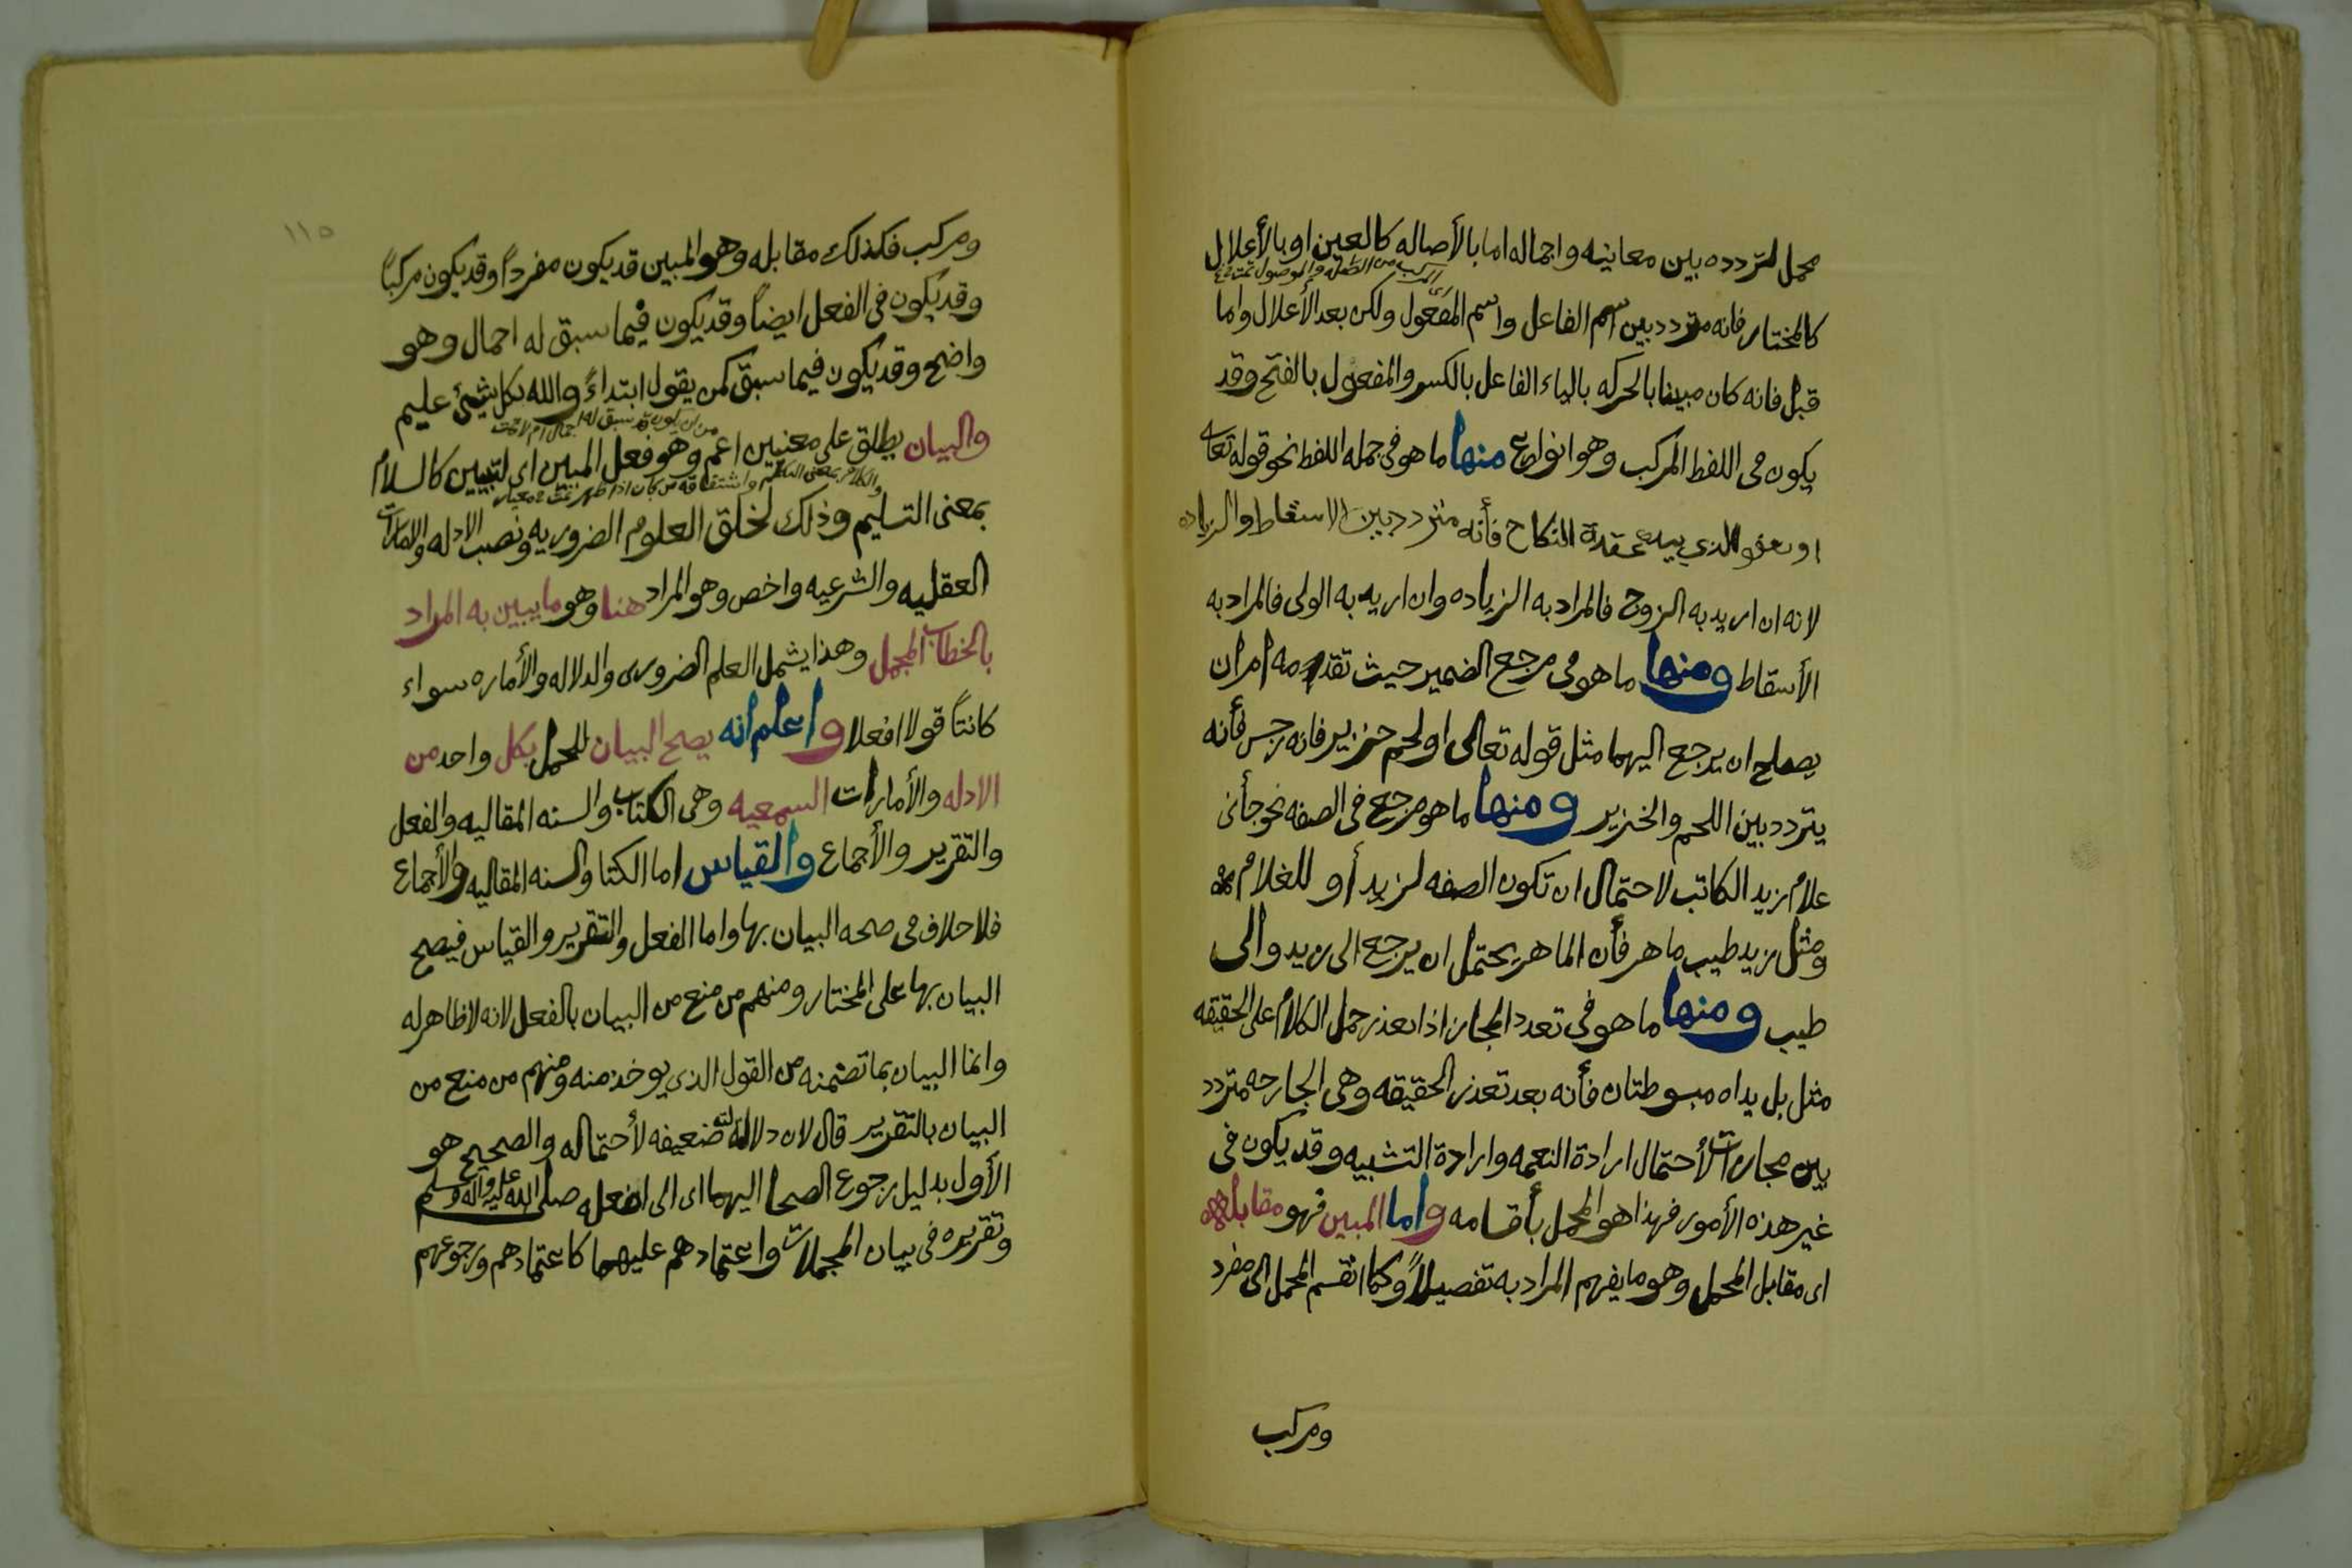 مجمل لتردده بين معانيه واجماله اما بالأصاله كالعين او بالأعلال
كالمختار فانه متردد بين اسم الفاعل واسم المفعول ولكن بعد الأعلال واما
قبل فانه كان مبينا بالحركه بالياء الفاعل بالكسر والمفعول بالفتح وقد
يكون فى اللفظ المركب وهو انواع منها ما هو فى جمله اللفظ نحو قوله تعالى
او يعفو الذي بيده عقدة النكاح فأنه متردد بين الاسقاط والزياده
لانه ان اريد به الزوج فالمراد به الزياده وان اريد به الولى فالمراد به
الأسقاط ومنها ما هو فى مرجع الضمير حيث تقدمه امران
يصلح ان يرجع اليهما مثل قوله تعالى او لحم خنزير فانه رجس فأنه
يتردد بين اللحم والخنزير ومنها ما هو مرجع فى الصفه نحو جأنى
غلام زيد الكاتب لاحتمال ان تكون الصفه لزيد أو للغلام
ومثل زيد طيب ماهر فأن الماهر يحتمل ان يرجع الى زيد والى
طيب ومنها ما هو فى تعدد المجاز اذا تعذر حمل الكلام على الحقيقه
مثل بل يداه مبسوطتان فأنه بعد تعذر الحقيقه وهى الجارحه متردد
بين مجازات لأحتمال ارادة النعمه وارادة التشبيه وقد يكون فى
غير هذه الأمور فهذا هو المجمل بأقسامه واما المبين فهو مقابله
اى مقابل المجمل وهو ما يفهم المراد به تفصيلاً وكما انقسم المجمل الى مفرد
ومركب
١١٥
ومركب فكذلك مقابله وهو المبين قد يكون مفرداً وقد يكون مركباً
وقد يكون فى الفعل ايضاً وقد يكون فيما سبق له اجمال وهو
واضح وقد يكون فيما سبق كمن يقول ابتداءً والله بكل شيئ عليم
من ان يكون قد سبق له اجمال ام لا تمت
والبيان يطلق على معنيين اعم وهو فعل المبين اى لتبيين كالسلام
والكلام بمعنى التكليم واشتقاقه من بان اذا ظهر تمت
بمعنى التسليم وذلك لخلق العلوم الضروريه ونصب الادله والامارات
العقليه والشرعيه واخص وهو المراد هنا وهو ما يبين به المراد
بالخطاب المجمل وهذا يشمل العلم الضرورى والدلاله والأماره سواء
كانتاً قولا افعلا واعلم انه يصح البيان للمجمل بكل واحد من
الادله والأمارات السمعيه وهى الكتاب والسنه المقاليه والفعل
والتقرير والأجماع والقياس اما الكتا والسنه المقاليه والأجماع
فلا خلاف فى صحه البيان بها واما الفعل والتقرير والقياس فيصح
البيان بها على المختار ومنهم من منع من البيان بالفعل لانه لا ظاهر له
وانما البيان بما تضمنه من القول الذى يوخذ منه ومنهم من منع من
البيان بالتقرير قال لان دلالته ضعيفه لأحتماله والصحيح هو
الأول بدليل رجوع الصحا اليهما اى الى افعله صلى الله عليه واله وسلم
وتقريره فى بيان المجملات واعتمادهم عليهما كاعتمادهم ورجوعهم